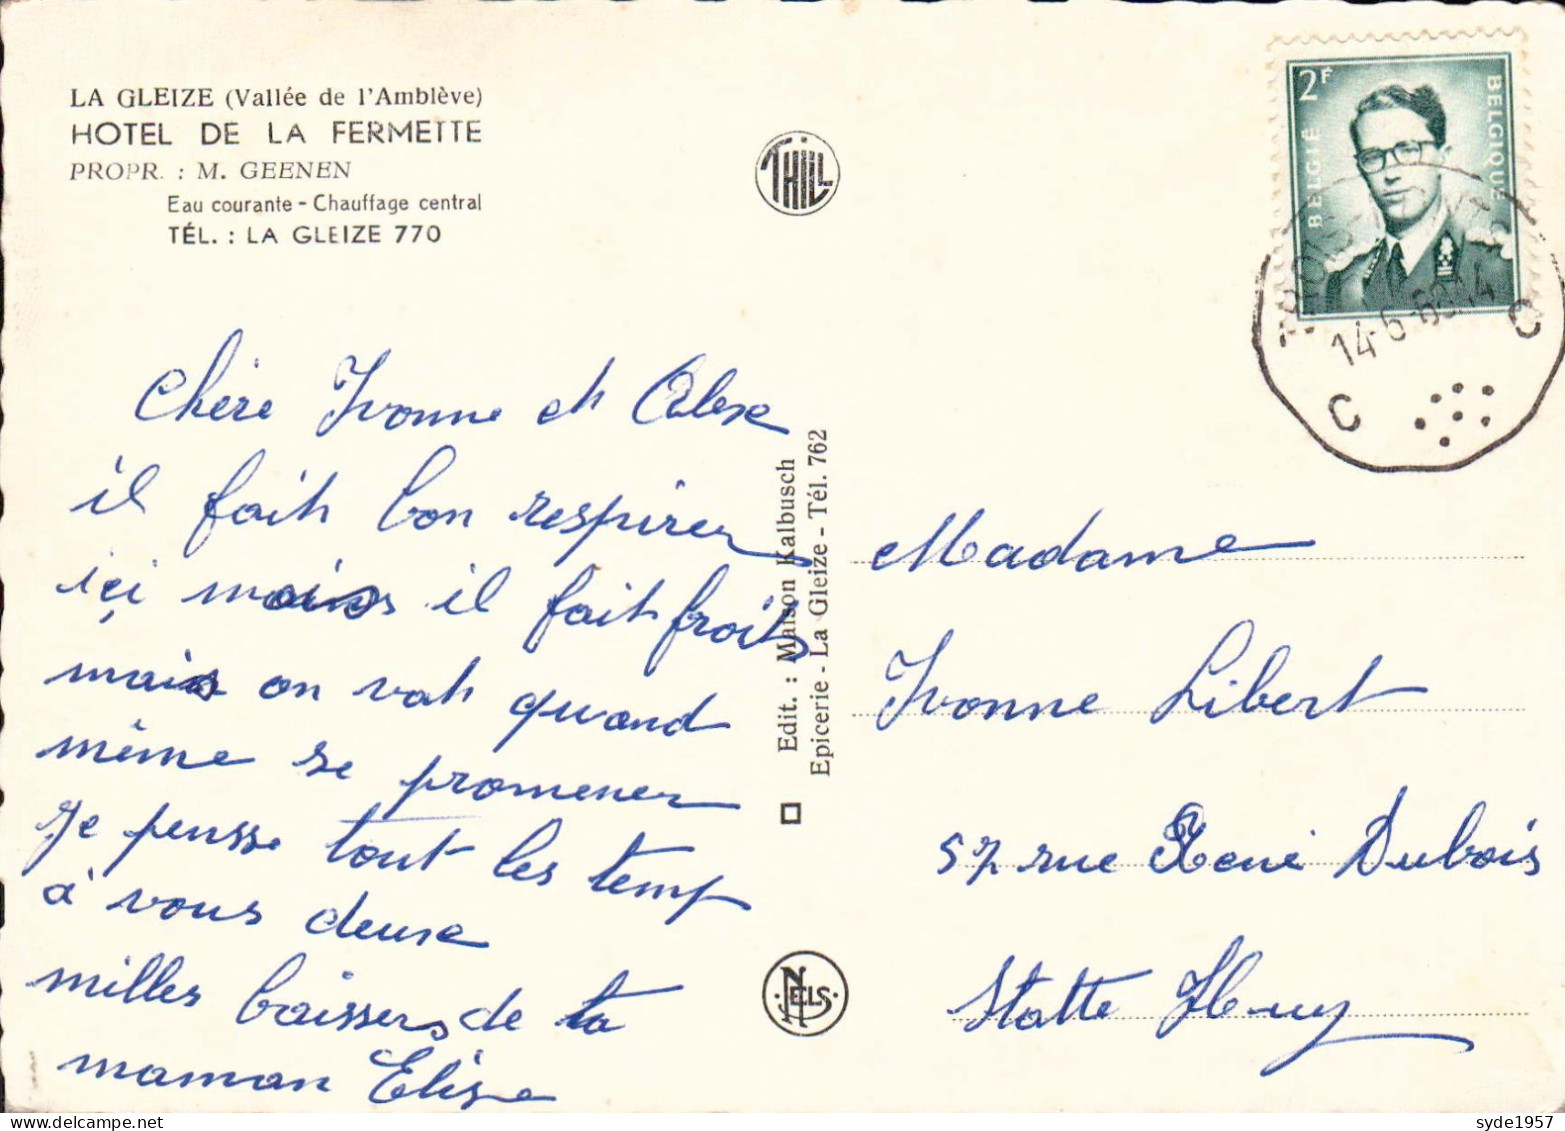 LA GLEIZE (Vallée de l'Amblève)
HOTEL DE LA FERMETTE
PROPR. : M. GEENEN
Eau courante - Chauffage central
TÉL. : LA GLEIZE 770
THILL
2F
BELGIË
BELGIQUE
14-6-60.14
C
C
Chère Yvonne et Alex
il fait bon respirer
içi mais il fait froits
mais on vat quand
même se promener
je pensse tout les temp
à vous deux
milles baissers de ta
maman Elise
Edit. : Maison Kalbusch
Epicerie - La Gleize - Tél. 762
NELS
Madame
Yvonne Libert
57 rue René Dubois
Statte Huy
syde1957